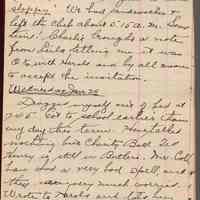 sloppy. We had sandwiches &
left the club about 5:15 a.m.
Charlie brought a note
from Lula telling me it was
O.K. with Harold and by all means
to accept the invitation.
Wednesday Jan 25
Dragged myself out of bed at
7:45. Got to school earlier than
any day this term. Have talked
nothing but Charity Ball.
Henry is still in Butlers. Mr. Coll
has had a very bad spell, and
they are very much worried.
Wrote to Harold and